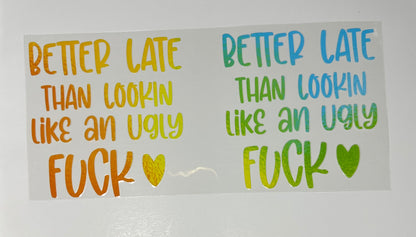 BETTER LATE
THAN LOOKIN
LIKE an UGLY
FUCK
BETTER LATE
THAN LOOKIN
LIKE an UGLY
FUCK